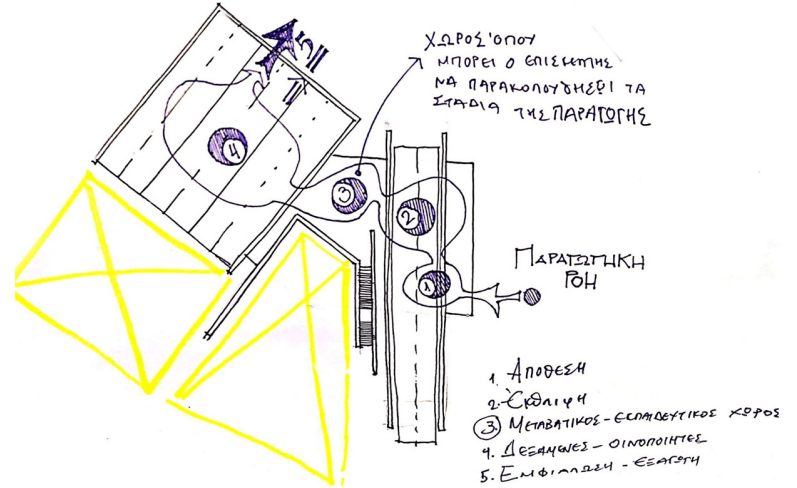 ΧΩΡΟΣ ΌΠΟΥ
ΜΠΟΡΕΙ Ο ΕΠΙΣΚΕΠΤΗΣ
ΝΑ ΠΑΡΑΚΟΛΟΥΘΗΣΕΙ ΤΑ
ΣΤΑΔΙΑ ΤΗΣ ΠΑΡΑΓΩΓΗΣ
5
4
3
2
1
ΠΑΡΑΓΩΓΙΚΗ
ΡΟΗ
1. ΑΠΟΘΕΣΗ
2. ΈΚΘΛΙΨΗ
3. ΜΕΤΑΒΑΤΙΚΟΣ - ΕΚΠΑΙΔΕΥΤΙΚΟΣ ΧΩΡΟΣ
4. ΔΕΞΑΜΕΝΕΣ - ΟΙΝΟΠΟΙΗΤΕΣ
5. ΕΜΦΙΑΛΩΣΗ - ΕΞΑΓΩΓΗ